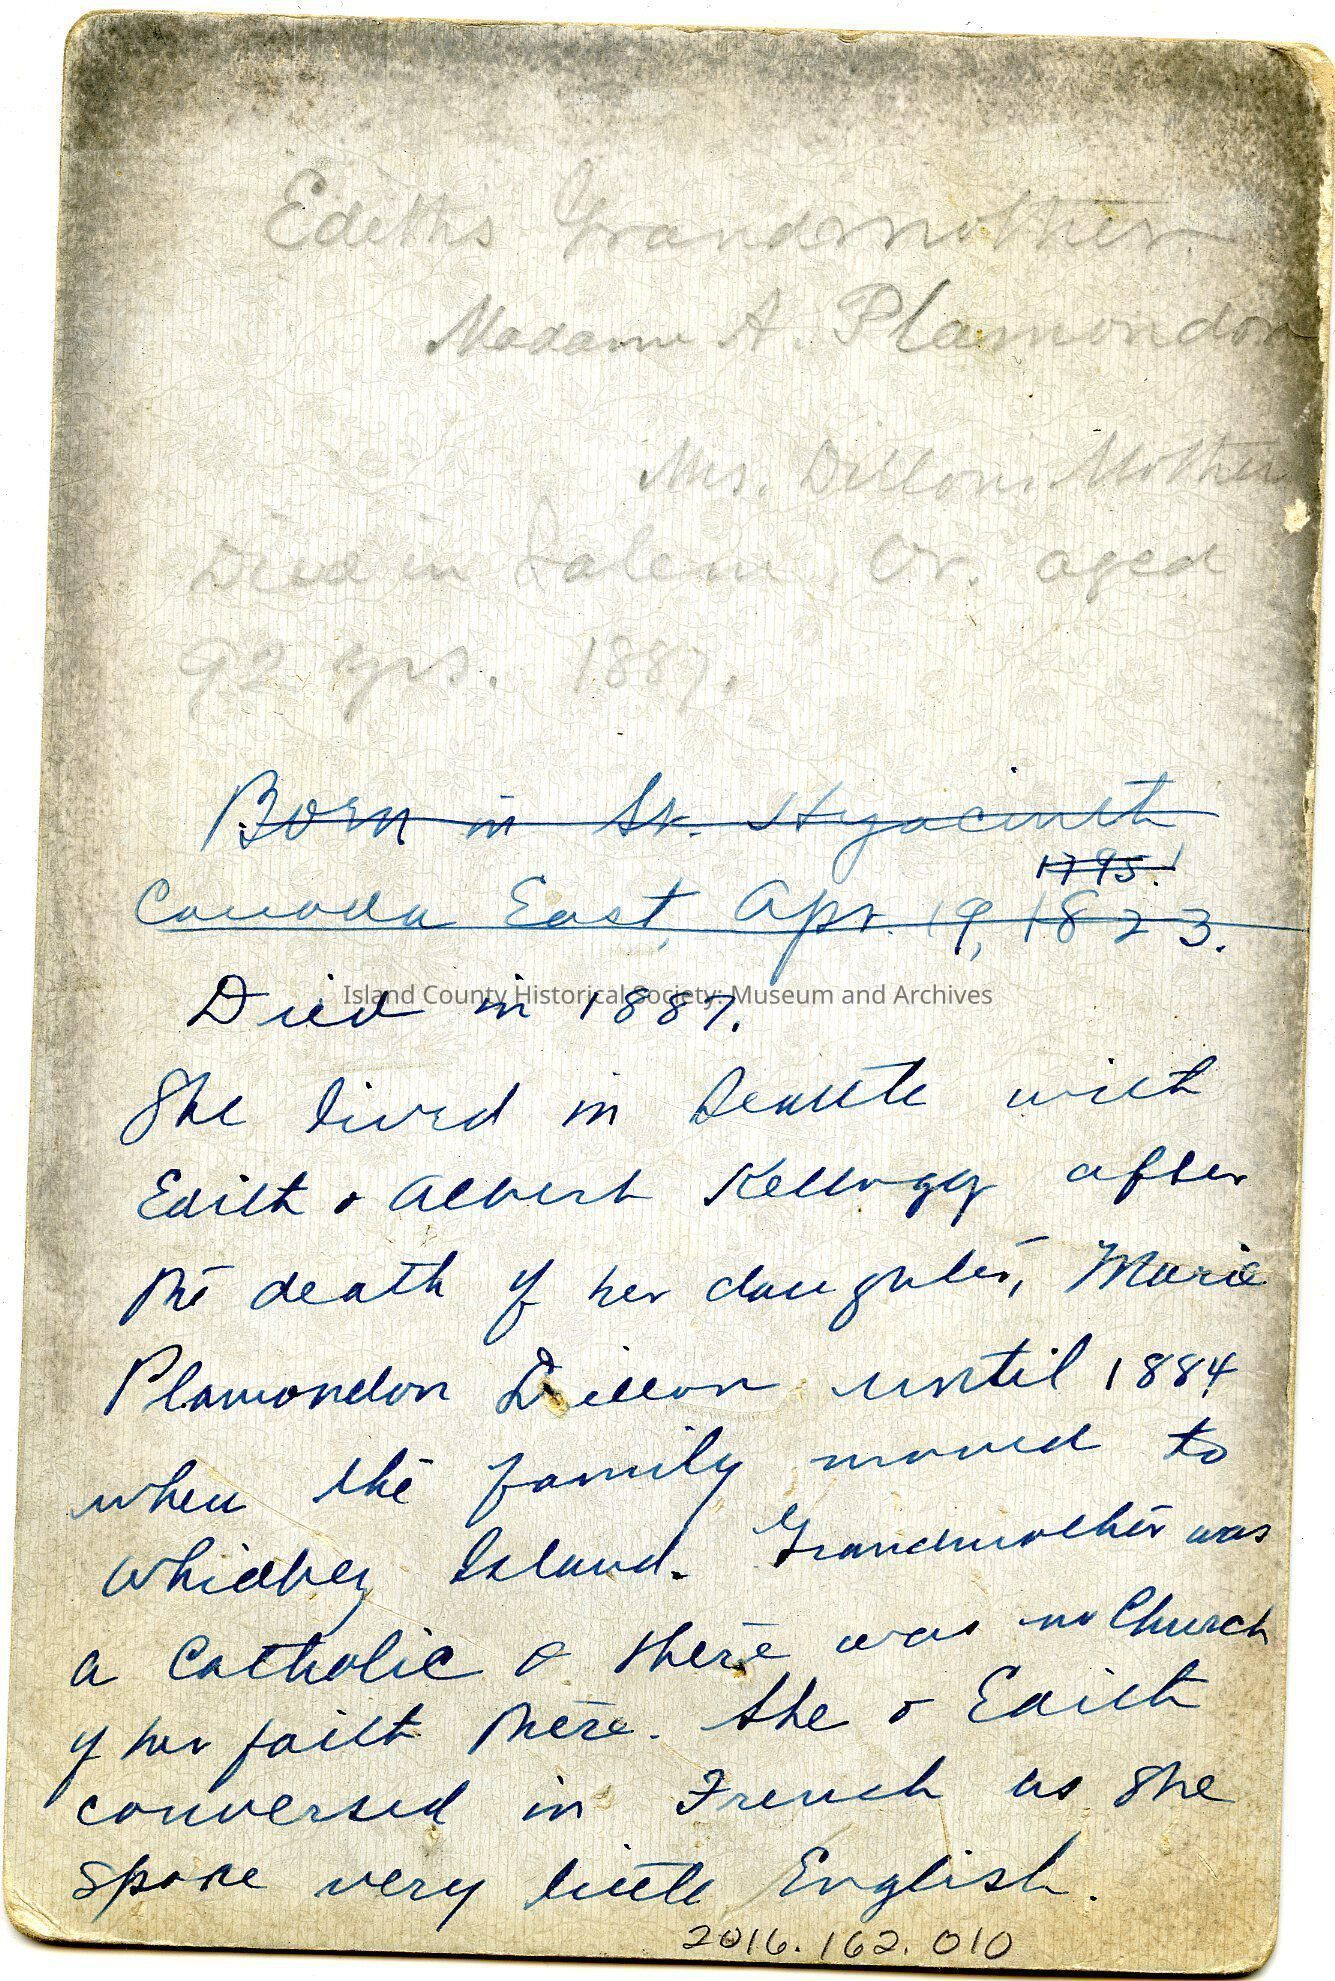 Ediths Grandmother
Madame A. Plamondon
Mrs. Dillons Mother
Died in Salem, Or. aged
92 yrs. 1887.
Born in St. Hyacinth
1795!
Canada East, Apr. 19, 1823.
Died in 1887.
Island County Historical Society: Museum and Archives
She lived in Seattle with
Edith & Albert Kellogg after
the death of her daughter, Marie
Plamondon Dillon until 1884
when the family moved to
Whidbey Island. Grandmother was
a Catholic & there was no Church
of her faith there. She & Edith
conversed in French as she
spoke very little English.
2016.162.010